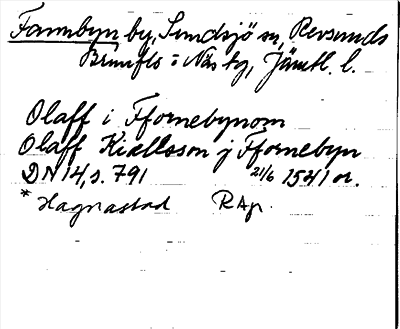 Fannbyn by, Sundsjö sn, Revsunds
Brunflo o Näs tg, Jämtl. l.
Olaff i Ffornebynom
Olaff Kiællsson j Ffornebyn
DN 14, s. 791 21/6 1541 or.
* Hagnastad RAp.